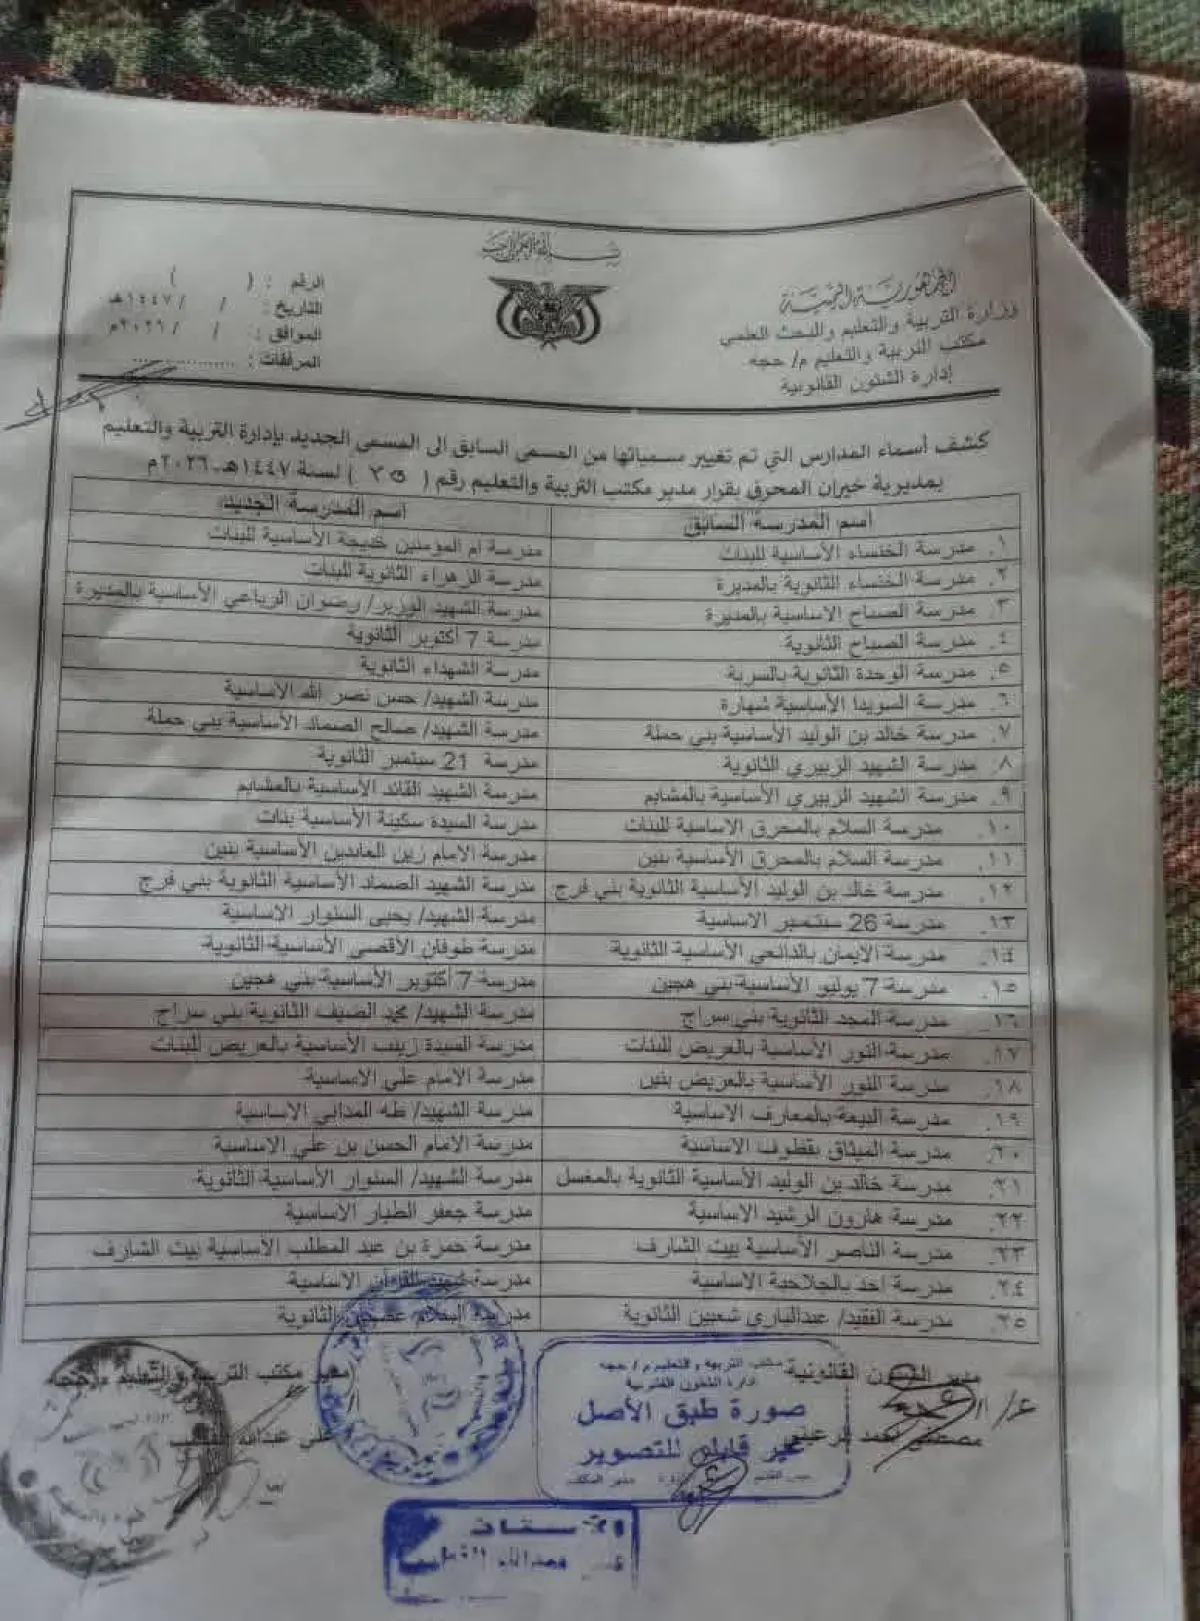 بسم الله الرحمن الرحيم
الجمهورية اليمنية
وزارة التربية والتعليم والبحث العلمي
مكتب التربية والتعليم م/ حجه
إدارة الشئون القانونية
الرقم : ( )
التاريخ : / / ١٤٤٧هـ
الموافق : / / ٢٠٢٦م
المرفقات : ................
كشف أسماء المدارس التي تم تغيير مسمياتها من المسمى السابق الى المسمى الجديد بإدارة التربية والتعليم
بمديرية خيران المحرق بقرار مدير مكتب التربية والتعليم رقم ( ٣٥ ) لسنة ١٤٤٧هـ-٢٠٢٦م
اسم المدرسة السابق اسم المدرسة الجديد
١. مدرسة الخنساء الأساسية للبنات مدرسة ام المؤمنين خديجة الأساسية للبنات
٢. مدرسة الخنساء الثانوية بالمديرة مدرسة الزهراء الثانوية للبنات
٣. مدرسة الصباح الاساسية بالمديرة مدرسة الشهيد الوزير/ رضوان الرباعي الأساسية بالمديرة
٤. مدرسة الصباح الثانوية مدرسة 7 أكتوبر الثانوية
٥. مدرسة الوحدة الثانوية بالسرية مدرسة الشهداء الثانوية
٦. مدرسة السويدا الأساسية شهارة مدرسة الشهيد/ حسن نصر الله الاساسية
٧. مدرسة خالد بن الوليد الأساسية بني حملة مدرسة الشهيد/ صالح الصماد الأساسية بني حملة
٨. مدرسة الشهيد الزبيري الثانوية مدرسة 21 سبتمبر الثانوية
٩. مدرسة الشهيد الزبيري الأساسية بالمشايم مدرسة الشهيد القائد الأساسية بالمشايم
١٠. مدرسة السلام بالمحرق الاساسية للبنات مدرسة السيدة سكينة الأساسية بنات
١١. مدرسة السلام بالمحرق الأساسية بنين مدرسة الامام زين العابدين الأساسية بنين
١٢. مدرسة خالد بن الوليد الأساسية الثانوية بني فرج مدرسة الشهيد الصماد الأساسية الثانوية بني فرج
١٣. مدرسة 26 سبتمبر الاساسية مدرسة الشهيد/ يحيى السنوار الاساسية
١٤. مدرسة الايمان بالدانعي الأساسية الثانوية مدرسة طوفان الأقصى الأساسية الثانوية
١٥. مدرسة 7 يوليو الأساسية بني هجين مدرسة 7 أكتوبر الأساسية بني هجين
١٦. مدرسة المجد الثانوية بني سراج مدرسة الشهيد/ محمد الضيف الثانوية بني سراج
١٧. مدرسة النور الأساسية بالعريض للبنات مدرسة السيدة زينب الأساسية بالعريض للبنات
١٨. مدرسة النور الأساسية بالعريض بنين مدرسة الامام علي الاساسية
١٩. مدرسة البيعة بالمعارف الاساسية مدرسة الشهيد/ طه المداني الاساسية
٢٠. مدرسة الميثاق بقطوف الاساسية مدرسة الامام الحسن بن علي الاساسية
٢١. مدرسة خالد بن الوليد الأساسية الثانوية بالمغسل مدرسة الشهيد/ السنوار الأساسية الثانوية
٢٢. مدرسة هارون الرشيد الاساسية مدرسة جعفر الطيار الاساسية
٢٣. مدرسة الناصر الأساسية بيت الشارف مدرسة حمزة بن عبد المطلب الأساسية بيت الشارف
٢٤. مدرسة احد بالجلاحية الاساسية مدرسة شهيد القرآن الاساسية
٢٥. مدرسة الفقيد/ عبدالباري شعبين الثانوية مدرسة الثانوية
مدير الشئون القانونية
مدير مكتب التربية والتعليم م/حجه
مكتب التربية والتعليم م / حجه
إدارة الشئون القانونية
صورة طبق الأصل
غير قابلة للتصوير